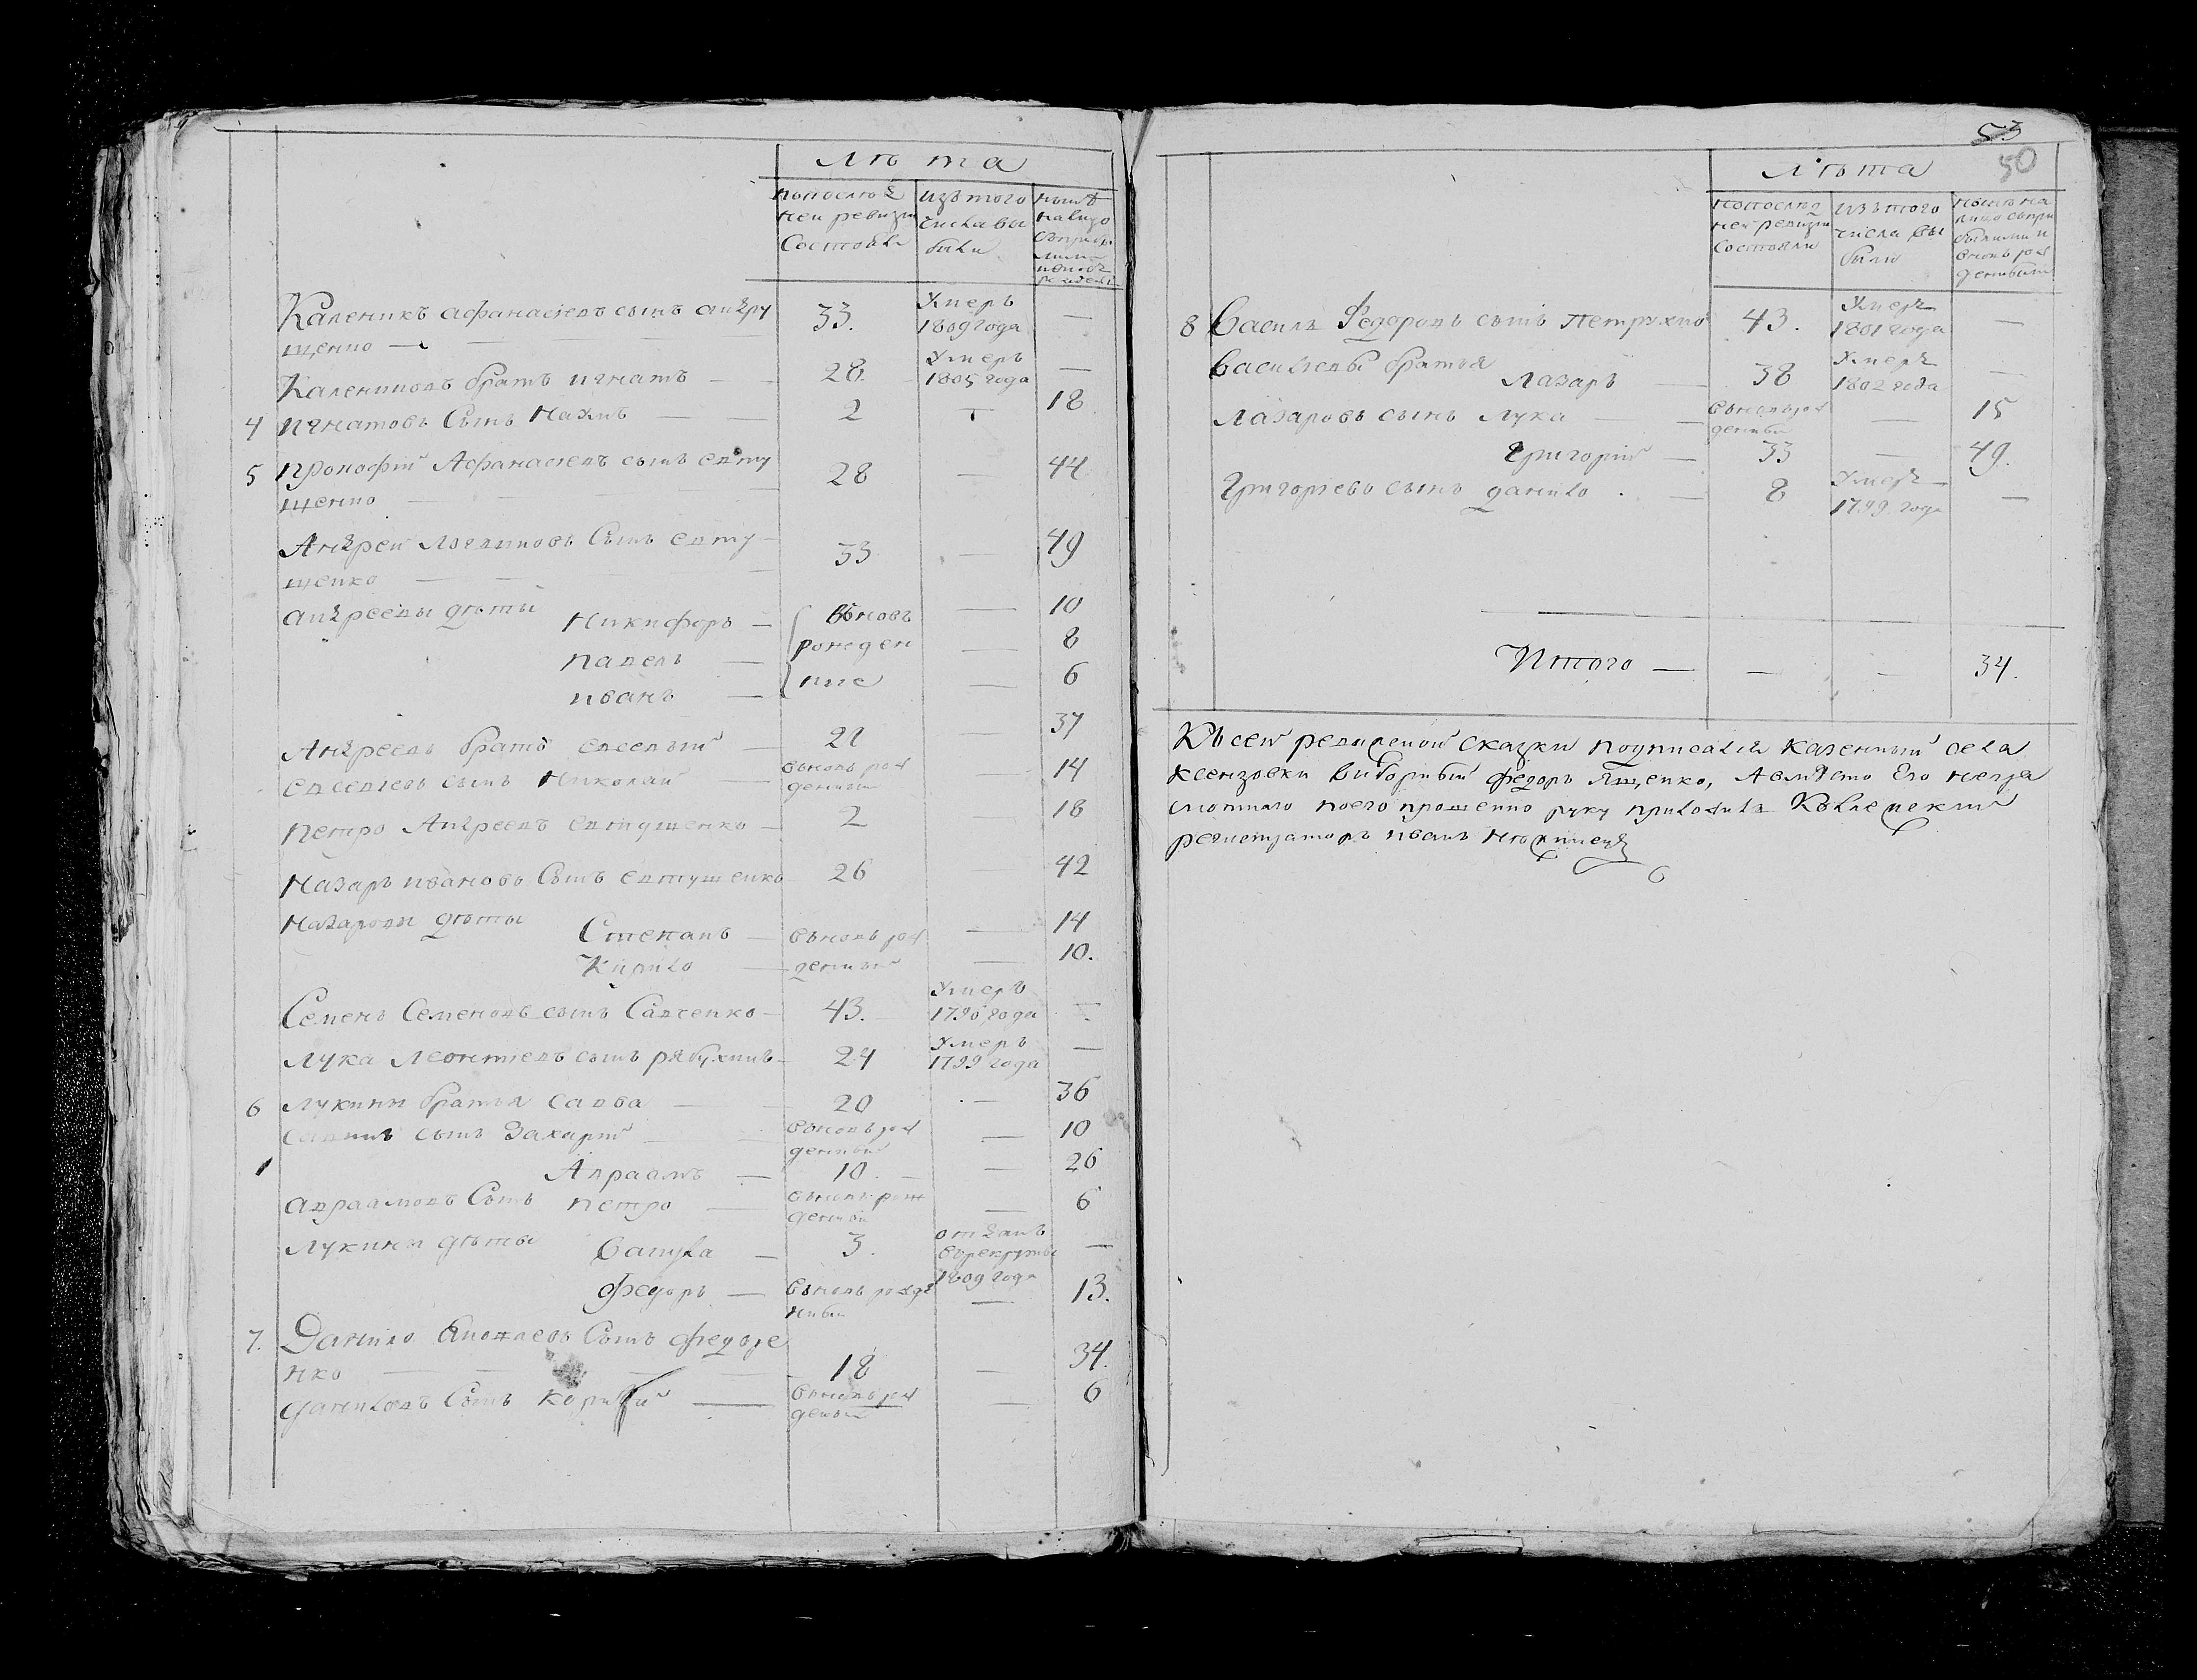 Лѣта
попослѣд
ней ревизіи
Состояли
изъ того
числа вы
были
нынѣ
налицо
Каленикъ афанасіевъ сынъ андру
щенко
33.
Умеръ
1809 года
—
Калениковъ братъ игнатъ
28.
Умеръ
1805 года
—
4 игнатовъ Сынъ Нахимъ
2
18
5 прокофій Афанасіевъ сынъ евту
щенко
28
—
44
Андрей Логвиновъ Сынъ евту
щенко
33
—
49
андрееви дѣты
Никифоръ — 10
павелъ — 8
иванъ — 6
вновь
рожден
ние
Андреевъ братъ евсевій
21
37
евсевіевъ сынъ Николай
вьновь рож
денный
—
14
петро Андреевъ евтушенко
2
18
Назаръ ивановъ Сынъ евтушенко
26
—
42
Назарови дѣты
Степанъ — вьновь рож — 14
Кирило — денный — 10.
Семенъ Семеновъ сынъ Савченко
43.
Умеръ
1796 года
—
Лука Леонтіевъ сынъ рябухинъ
24
Умеръ
1799 года
—
6 Лукини братья савва
20
—
36
саввинъ сынъ Захарій
вьновь рож
денный
—
10
Авраамъ — 10. — 26
авраамовъ Сынъ петро
вьновь рож
денной
—
6
Лукини дѣты
Гаврила — 3.
отданъ
въ рекруты
1809 года
—
Федоръ — вьновь рожде
нный
—
13.
7. Данило Яковлевъ Сынъ федоре
нко
18
—
34.
даниловъ Сынъ корнѣй
вьновь рож
деный
—
6
53
50
Лѣта
попослѣд
ней ревизіи
Состояли
изъ того
числа вы
были
нынѣ на
лицо съ при
былими и
вновь рож
денными
8 Василь Федоровъ сынъ петрухно
43.
Умеръ
1801 года
—
Васильеви братья
Лазаръ
38
Умеръ
1802 года
—
Лазаровъ сынъ Лука
вьновь рож
денный
—
15
Григорій — 33 — 49.
Григоріевъ сынъ данило
8
Умеръ
1799 года
—
Итого — — — 34.
Къ сей ревизской сказки подписался казенный села
ксензовки виборный федоръ Ященко, А вмѣсто Его негра
мотнаго поего прошенію руку приложилъ
регистраторъ иванъ